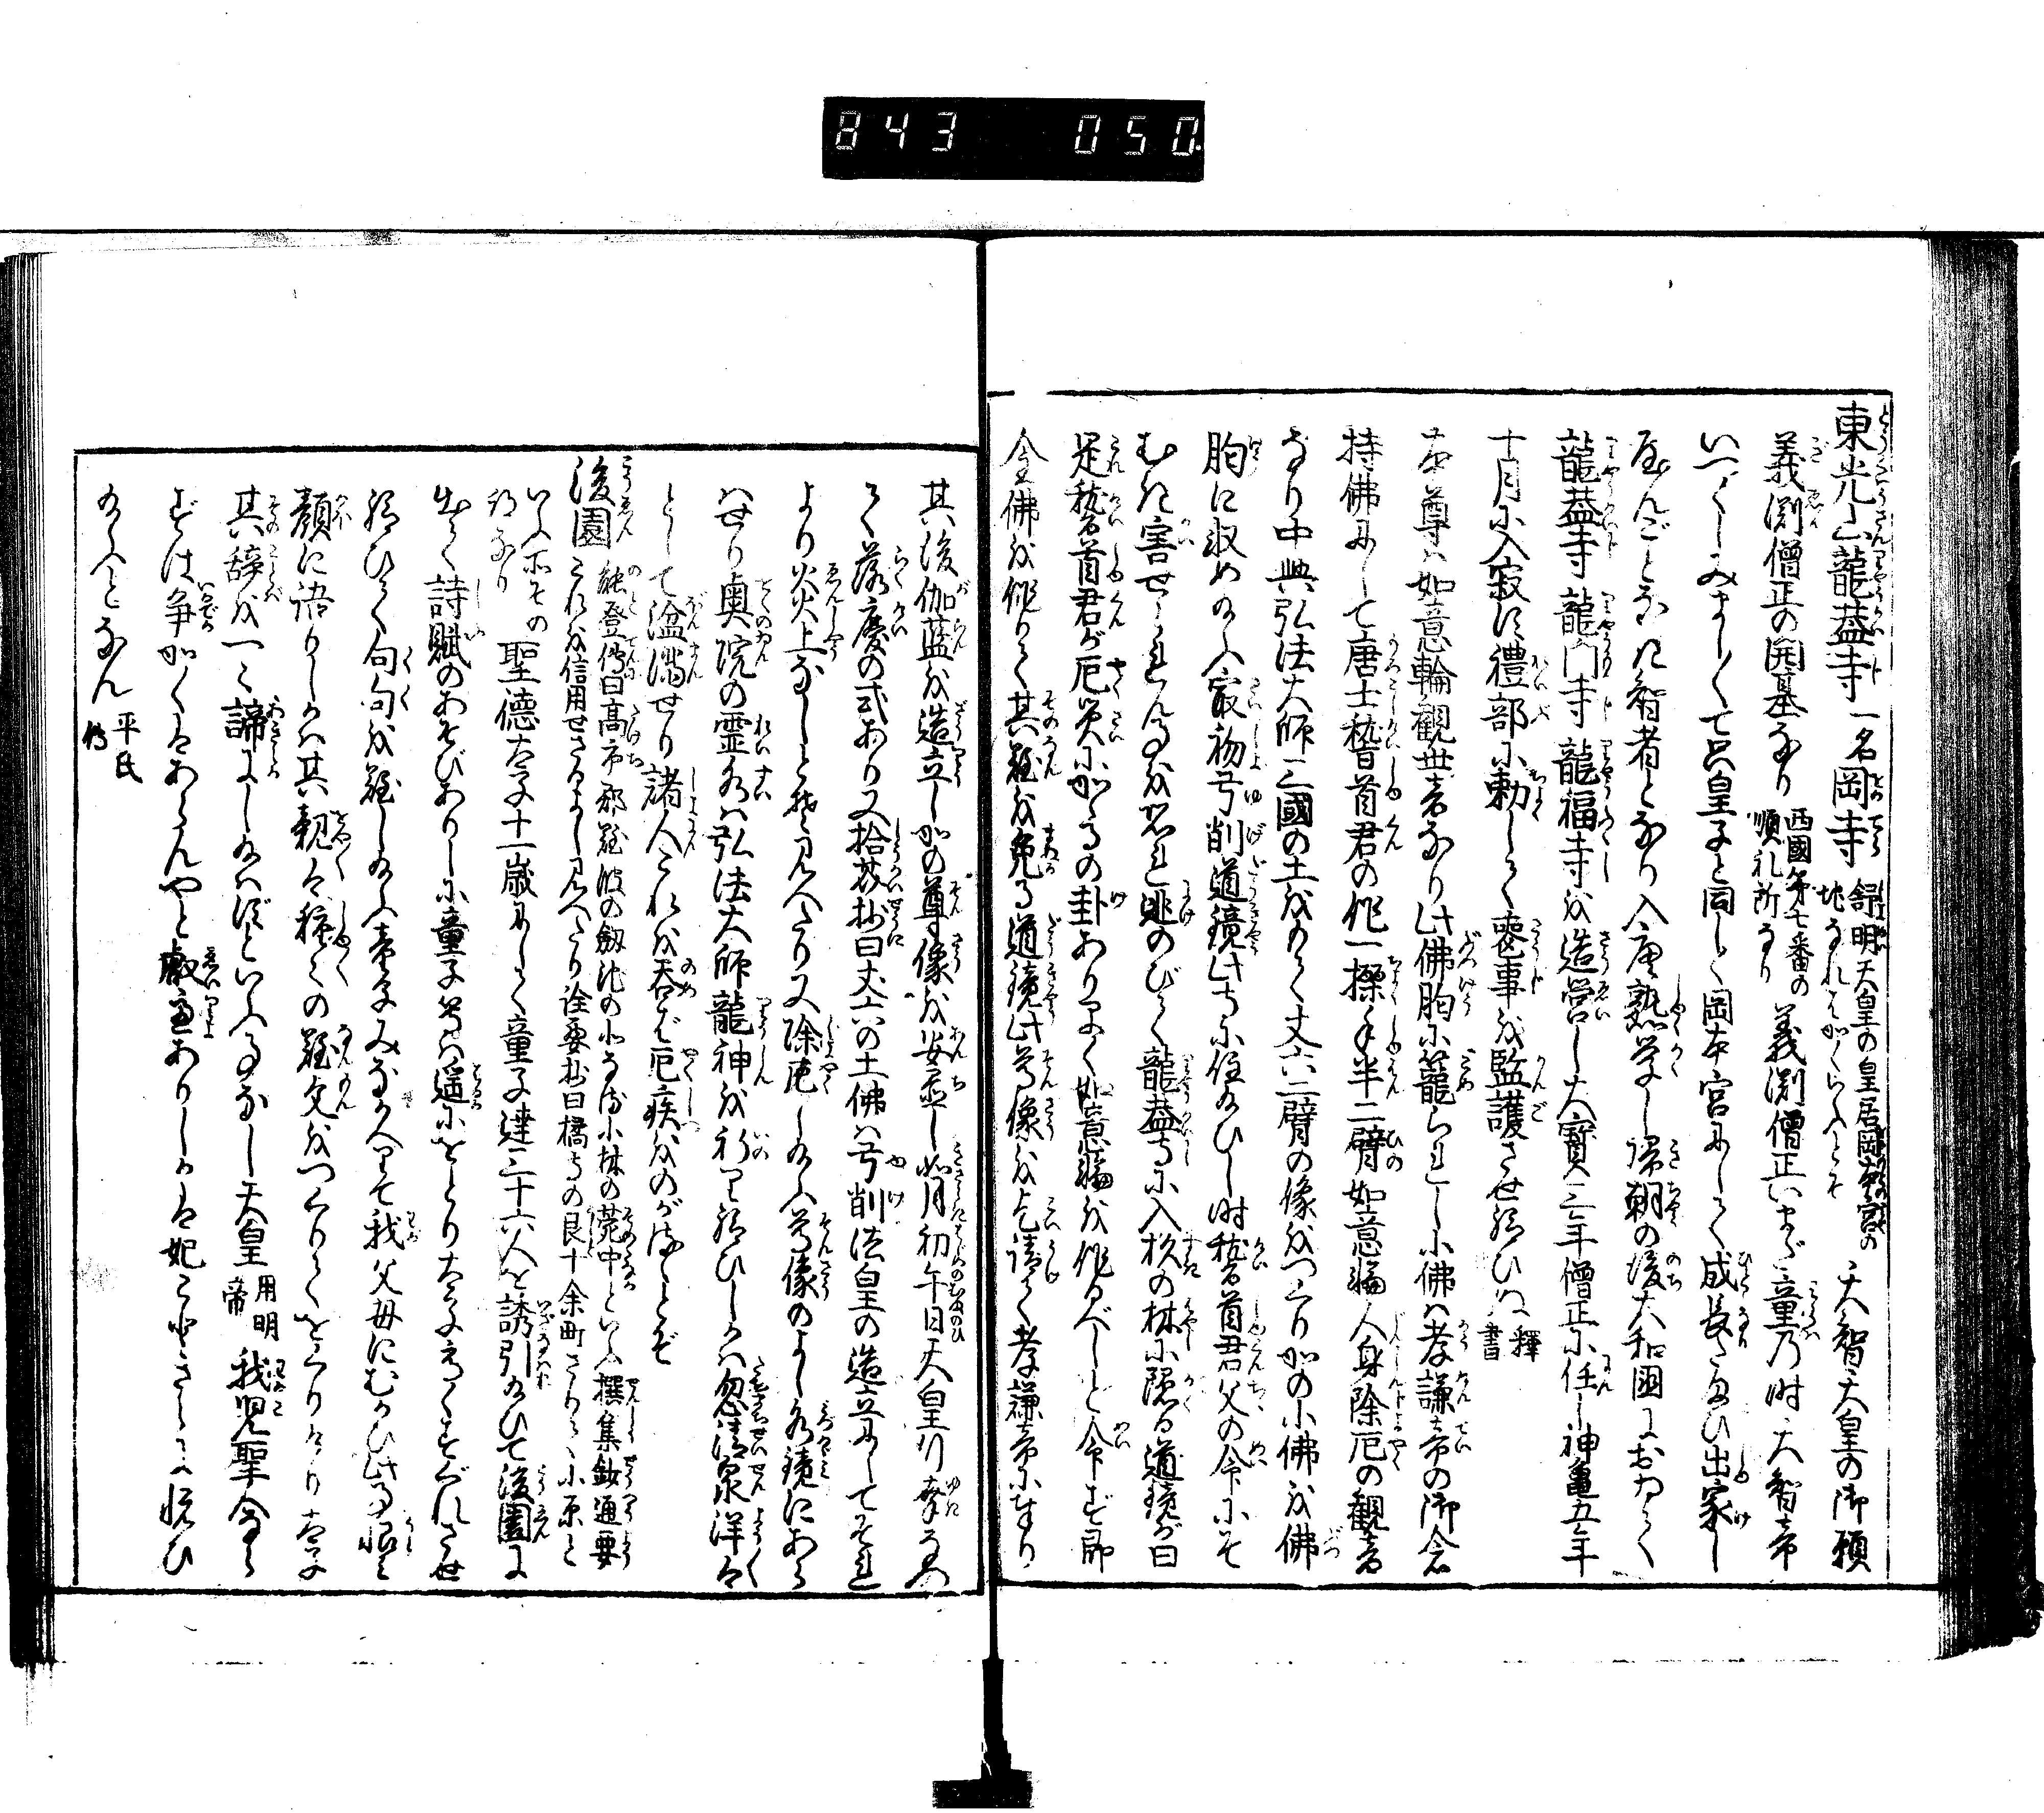 843 050
東光山龍蓋寺 一名岡寺 舒明天皇の皇居岡本宮の地なれはかくらふとそ 天智天皇の御願
義渕僧正の開基なり 西國第七番の順礼所なり 義渕僧正いまだ童乃時天智帝
いつくしみましく て只皇子と同しく岡本宮にして成長さ給ひ出家し
やんごとなき智者となり入唐熟学し帰朝の後大和国におゐて
龍蓋寺龍門寺龍福寺を造営し大寳三年僧正に任し神亀五年
十月に入寂す禮部に勅して喪事を監護させ給ひぬ 釋書
本尊ハ如意輪観世音なり此佛胸に籠られし小佛ハ孝謙帝の御念
持佛にして唐土稽首君の作一搩手半二臂如意輪人身除厄の観音
なり中興弘法大師三國の土をのて丈六二臂の像をつくり加の小佛を佛
胸に収め給ふ最初弓削道鏡此寺に住給ひし時稽首君父の令にそ
むき害せられんるを恐れ迯のびて龍蓋寺に入杉の林に隠る道鏡が曰
是稽首君が厄災にかゝるの卦あり早く如意輪を作るべしと令ず即
金佛を作りて其難を免る道鏡此尊像を乞請て孝謙帝に奉り
其後伽藍を造立し加の尊像を安置し如月初午日天皇行幸なつ
て落慶の式あり又拾芥抄曰丈六の土佛ハ弓削法皇の造立にしてそれ
より火災上なしと見へたり又除厄し給ふ尊像のよし水鏡にあら
はせり奥院の霊水ハ弘法大師龍神を祈り給ひしかハ忽清泉洋々
として湓満せり諸人これを呑バ厄疾をのがるとぞ
後園 能登傳曰高市郡難波の劔池の北なる小林の苑中といふ撰集鈔通要
これを信用せさるよし見へたり詮要抄曰橘寺の艮十余町さりて小原と
いふ所その邳なり 聖德太子十一歳にして童子達三十六人を誘引給ひて後園に
出て詩賦のあそびありしに童子等ハ遥にをとり太子ハすぐれさせ
給ひて句句を難し給ふ童子みなかへりて我父母にむかひ此事恨ミ
顔に語りしかハ其親々種々の難文をつくりてをくりけり太子
其辞を一々諦にし給はずといふ事なし天皇 用明帝 我児聖ならずは争かくはあらんやと叡慮ありしかは妃こときさらに悦ひ
給ふとなん 平氏傳